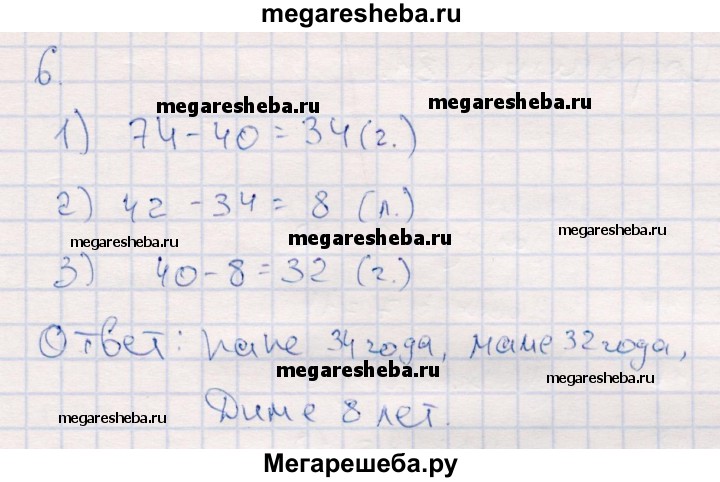 megaresheba.ru
6.
megaresheba.ru megaresheba.ru
1) 74-40=34(г.)
2) 42-34= 8 (л.)
megaresheba.ru megaresheba.ru megaresheba.ru
3) 40-8=32 (г.)
Ответ: папе 34 года, маме 32 года,
megaresheba.ru megaresheba.ru
megaresheba.ru Диме 8 лет.
Мегарешеба.ру